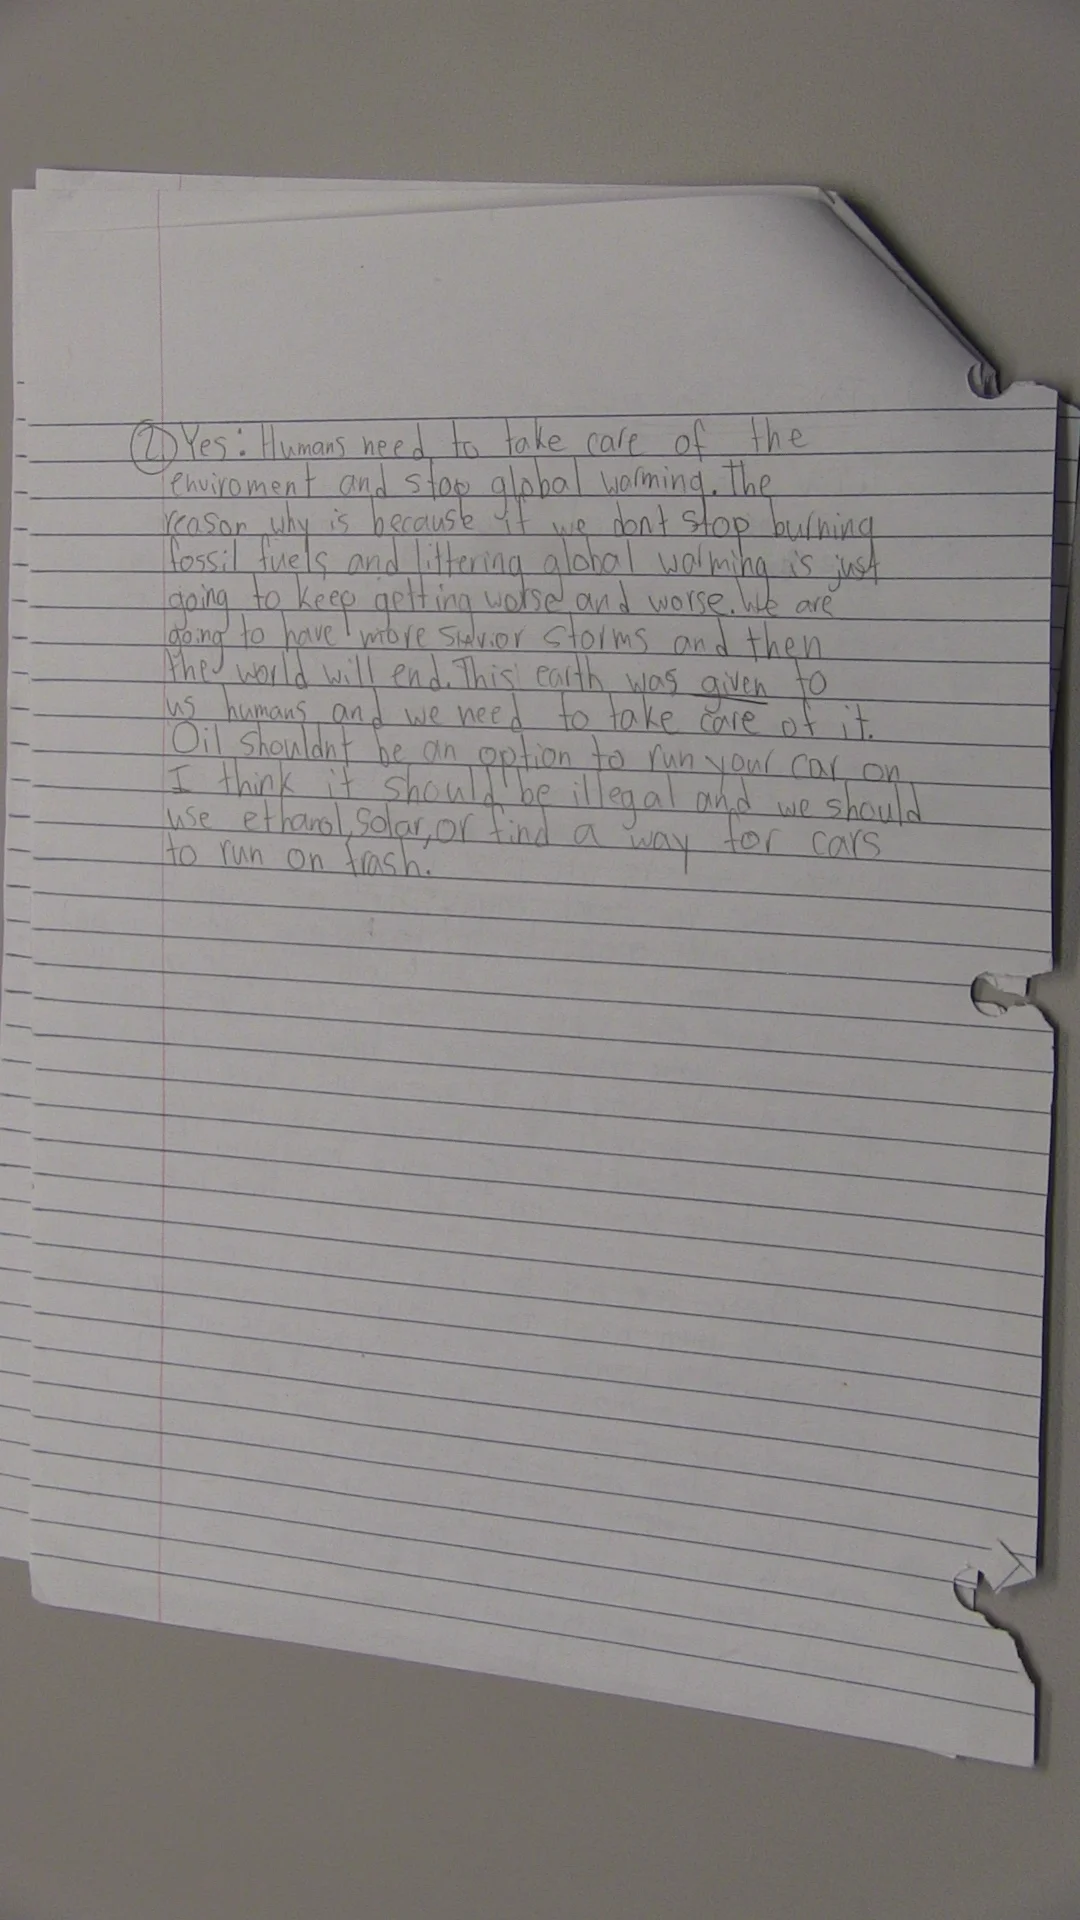 2. Yes: Humans need to take care of the
enviroment and stop global warming. The
reason why is because if we dont stop burning
fossil fuels and littering global warming is just
going to keep getting worse and worse. We are
going to have more storms and then
the world will end. This earth was given to
us humans and we need to take care of it.
Oil shouldnt be an option to run your car on
I think it should be illegal and we should
use ethanol, solar, or find a way for cars
to run on trash.